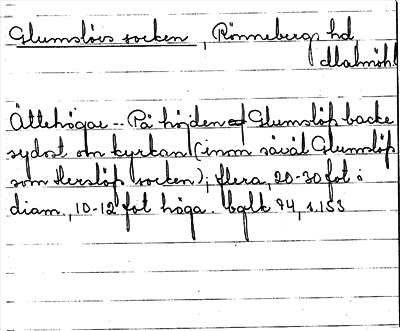 Glumslövs socken, Rönnebergs hd
Malmöhl
Ättehögar -- På höjden af Glumslöfs backe
sydost om kyrkan (inom såväl Glumslöfs
som Herslöfs socken); flera, 20-30 fot i
diam., 10-12 fot höga. bglk 94, s.153